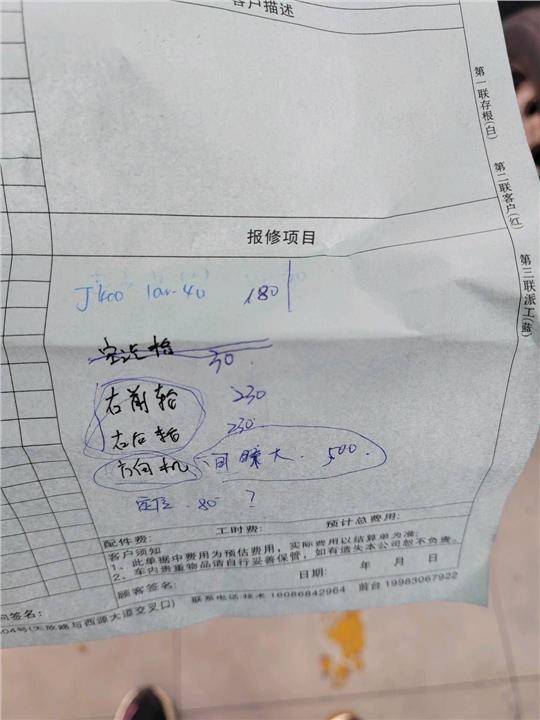 客户描述
第一联存根(白)
第二联客户(红)
第三联派工(蓝)
报修项目
J400 10w-40 180
30
右前轮 230
右后轮 230
方向机 间隙大. 500.
80 ?
配件费: 工时费: 预计总费用:
客户须知
1、此单据中费用为预估费用，实际费用以结算单为准;
2、车内贵重物品请自行妥善保管，如有遗失本公司恕不负责。
日期: 年 月 日
顾客签名:
联系电话 技术 18086842964 前台 19983067922
问签名:
04号(天欣路与西源大道交叉口)